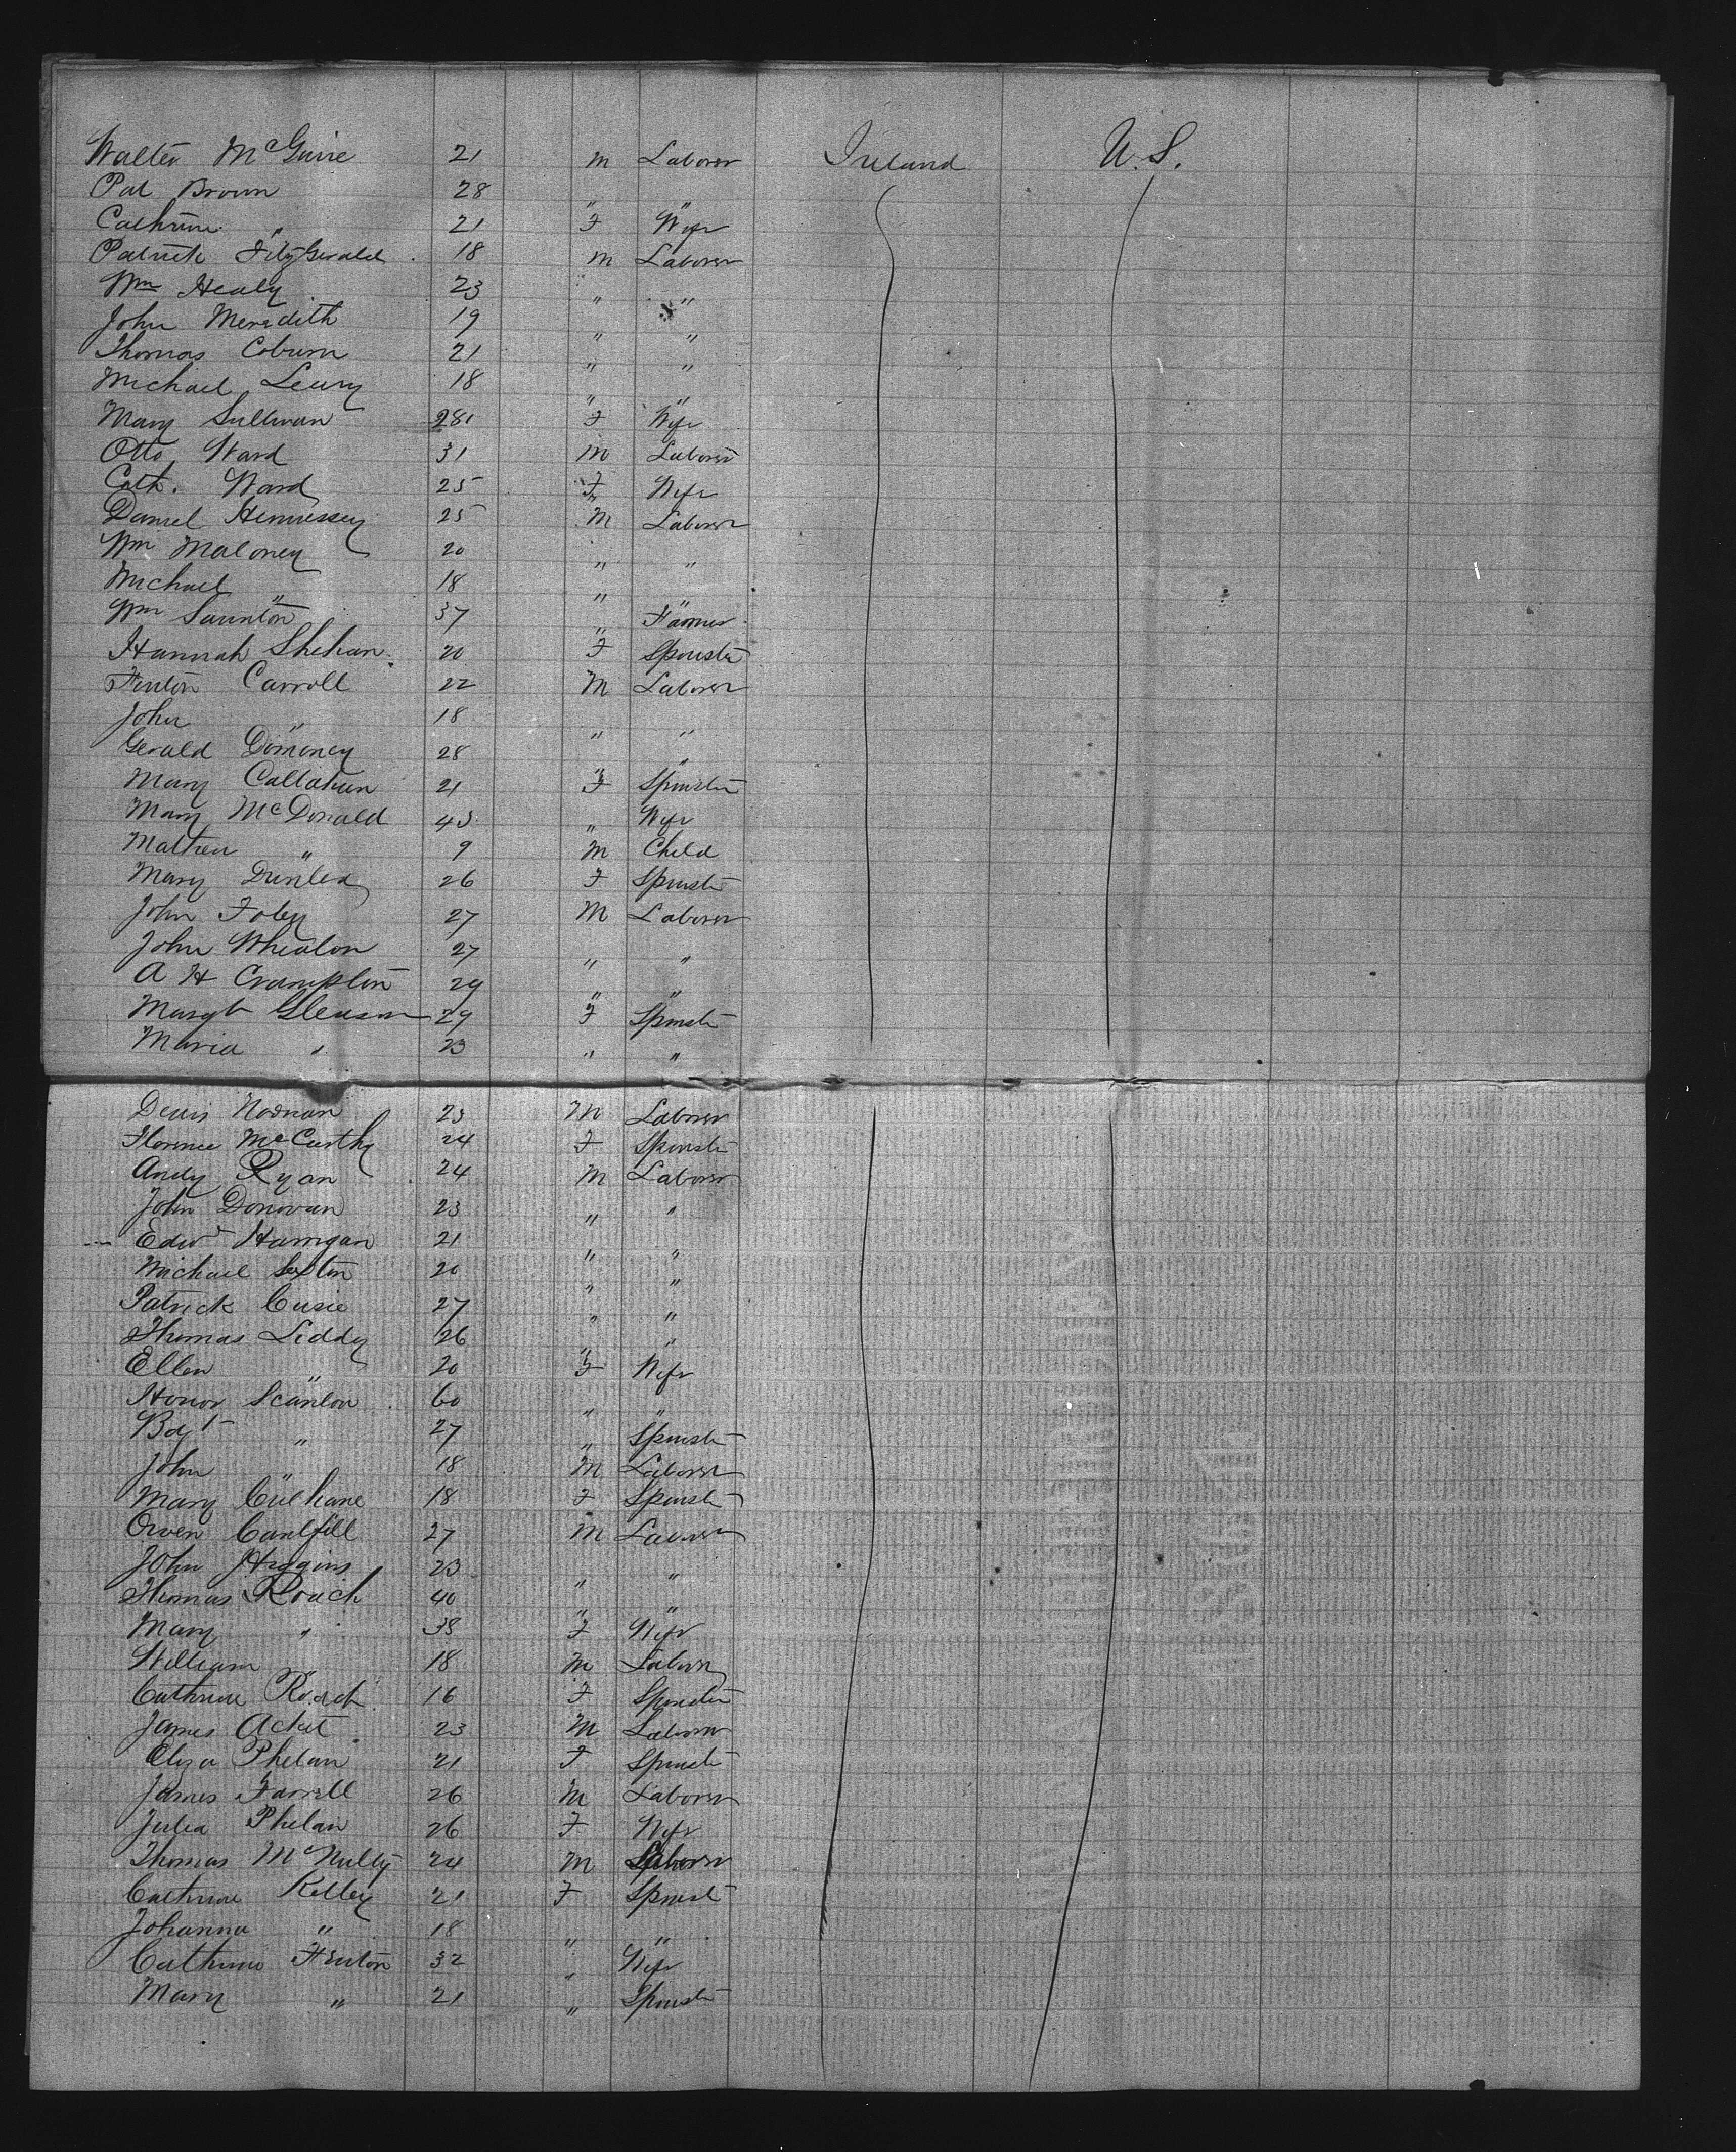 Walter McGuire 21 m Laborer Ireland U.S.
Pat Brown 28 " "
Cathrine " 21 F Wife
Patrick FitzGerald 18 m Laborer
Wm Healy 23 " "
John Meredith 19 " "
Thomas Coburn 21 " "
Michael Leury 18 " "
Mary Sullivan 281 F Wife
Otto Ward 31 m Laborer
Cath. Ward 25 F Wife
Daniel Hennessey 25 M Laborer
Wm Maloney 20 " "
Michael " 18 " "
Wm Saunton 37 " Farmer
Hannah Shehan 20 F Spinster
Fenton Carroll 22 M Laborer
John " 18 " "
Gerald Domoney 28 " "
Mary Callahan 21 F Spinster
Mary McDonald 43 " Wife
Mathew " 9 M Child
Mary Dunlea 26 F Spinster
John Foley 27 M Laborer
John Whealon 27 " "
A H Crampton 29 " "
Margt Gleason 29 F Spinster
Maria " 23 " "
Denis Noonan 23 M Laborer
Florence McCarthy 24 F Spinster
Andy Ryan 24 M Laborer
John Donovan 23 " "
Edwd Harrigan 21 " "
Michael Sexton 20 " "
Patrick Cusie 27 " "
Thomas Liddy 26 " "
Ellen " 20 F Wife
Honor Scanlon 60 " "
Bdgt " 27 " Spinster
John " 18 M Laborer
Mary Culhane 18 F Spinster
Owen Caulfill 27 M Laborer
John Higgins 23 " "
Thomas Roach 40 " "
Mary " 38 F Wife
William " 18 M Laborer
Cathrine Roach 16 F Spinster
James Acket 23 M Laborer
Eliza Phelan 21 F Spinster
James Farrell 26 M Laborer
Julia Phelan 26 F Wife
Thomas McNulty 24 M Laborer
Cathrine Kelley 21 F Spinster
Johanna " 18 " "
Cathrine Fenton 32 " Wife
Mary " 21 " Spinster